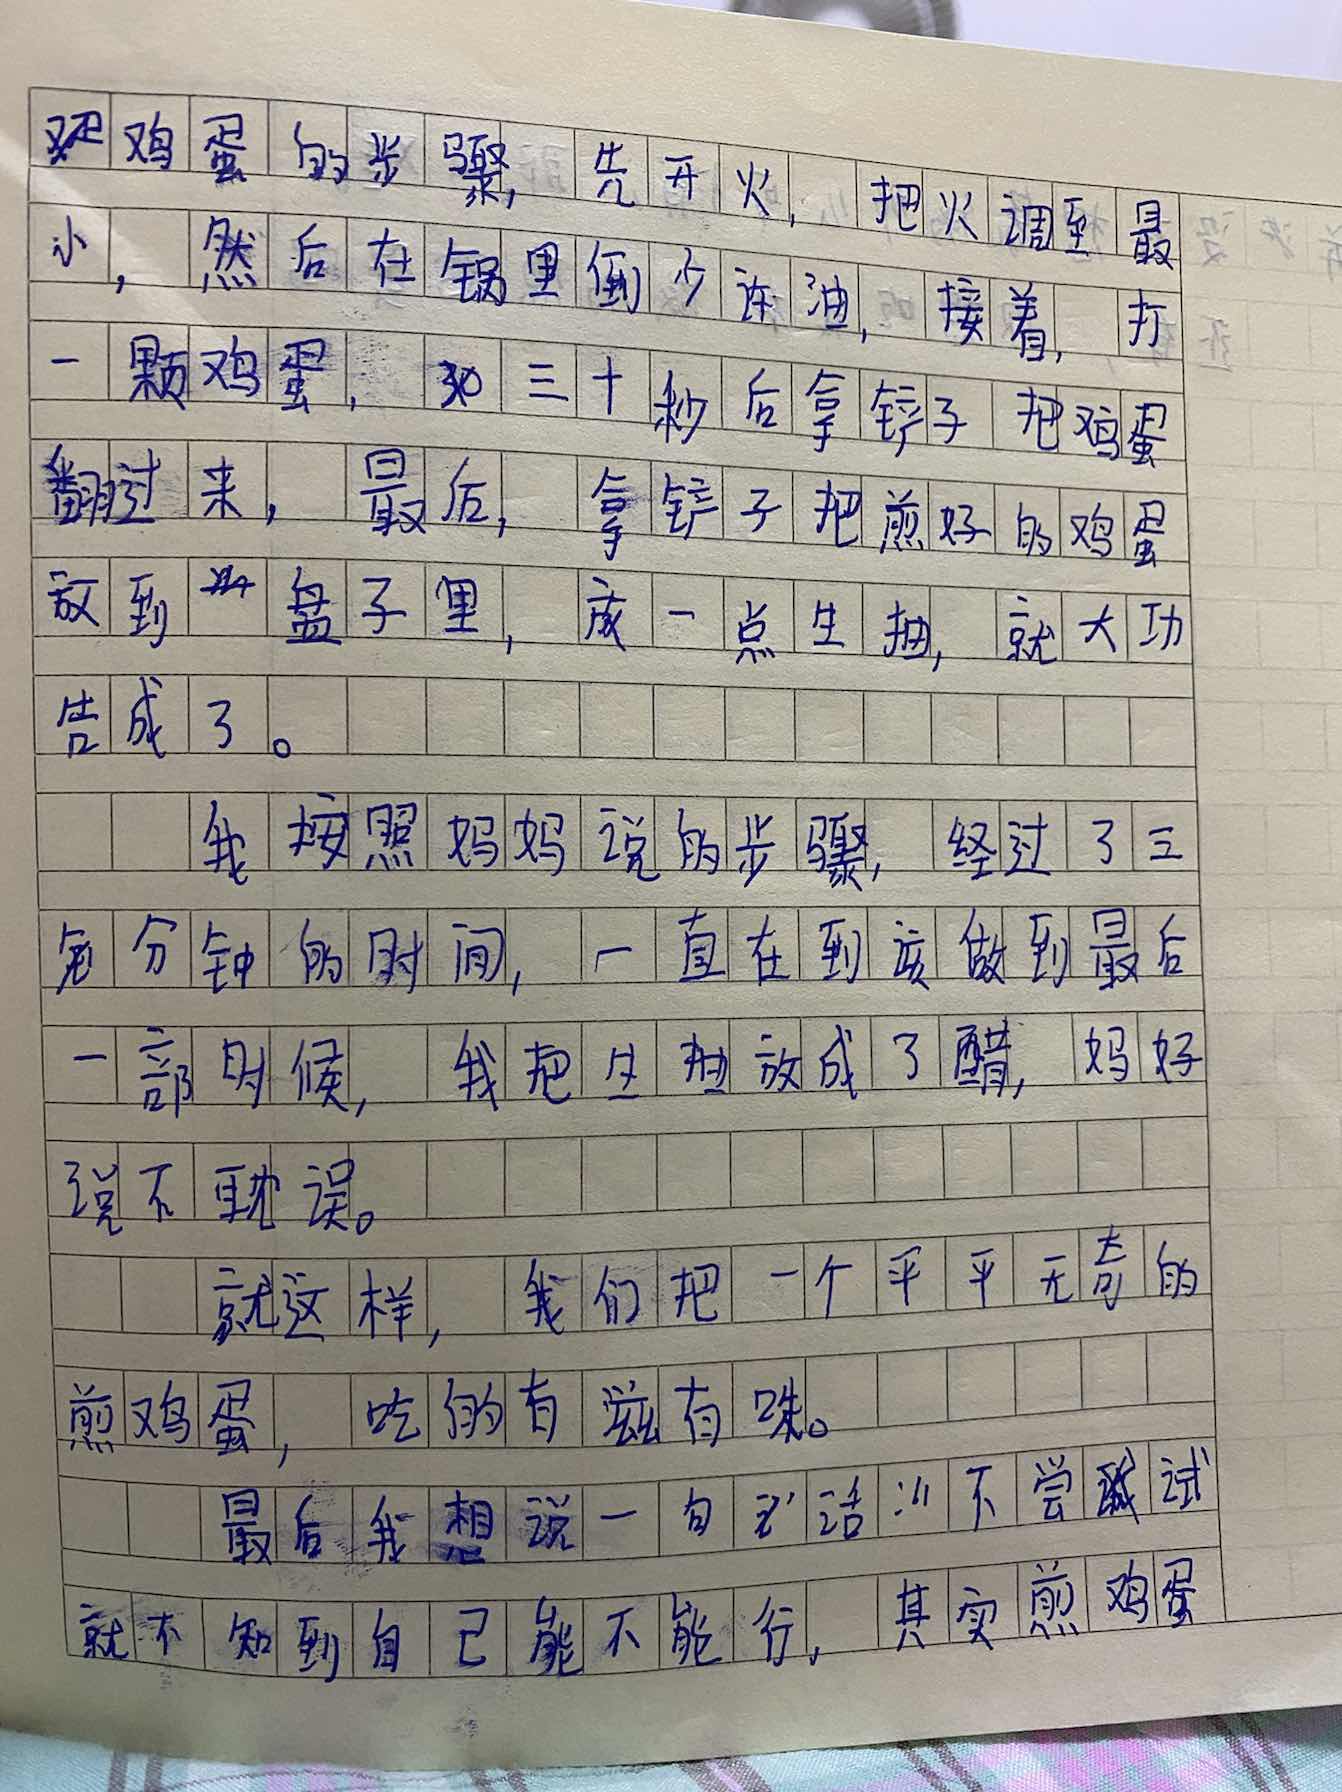 鸡蛋的步骤，先开火，把火调到最
小，然后在锅里倒少许油，接着，打
一颗鸡蛋，三十秒后拿铲子把鸡蛋
翻过来，最后，拿铲子把煎好的鸡蛋
放到盘子里，放一点生抽，就大功
告成了。
我按照妈妈说的步骤，经过了三
分钟的时间，一直在到该做到最后
一部时候，我把生抽放成了醋，妈好
说不耽误。
就这样，我们把一个平平无奇的
煎鸡蛋，吃的有滋有味。
最后我想说一句话：“不尝试
就不知到自己能不能行，其实煎鸡蛋